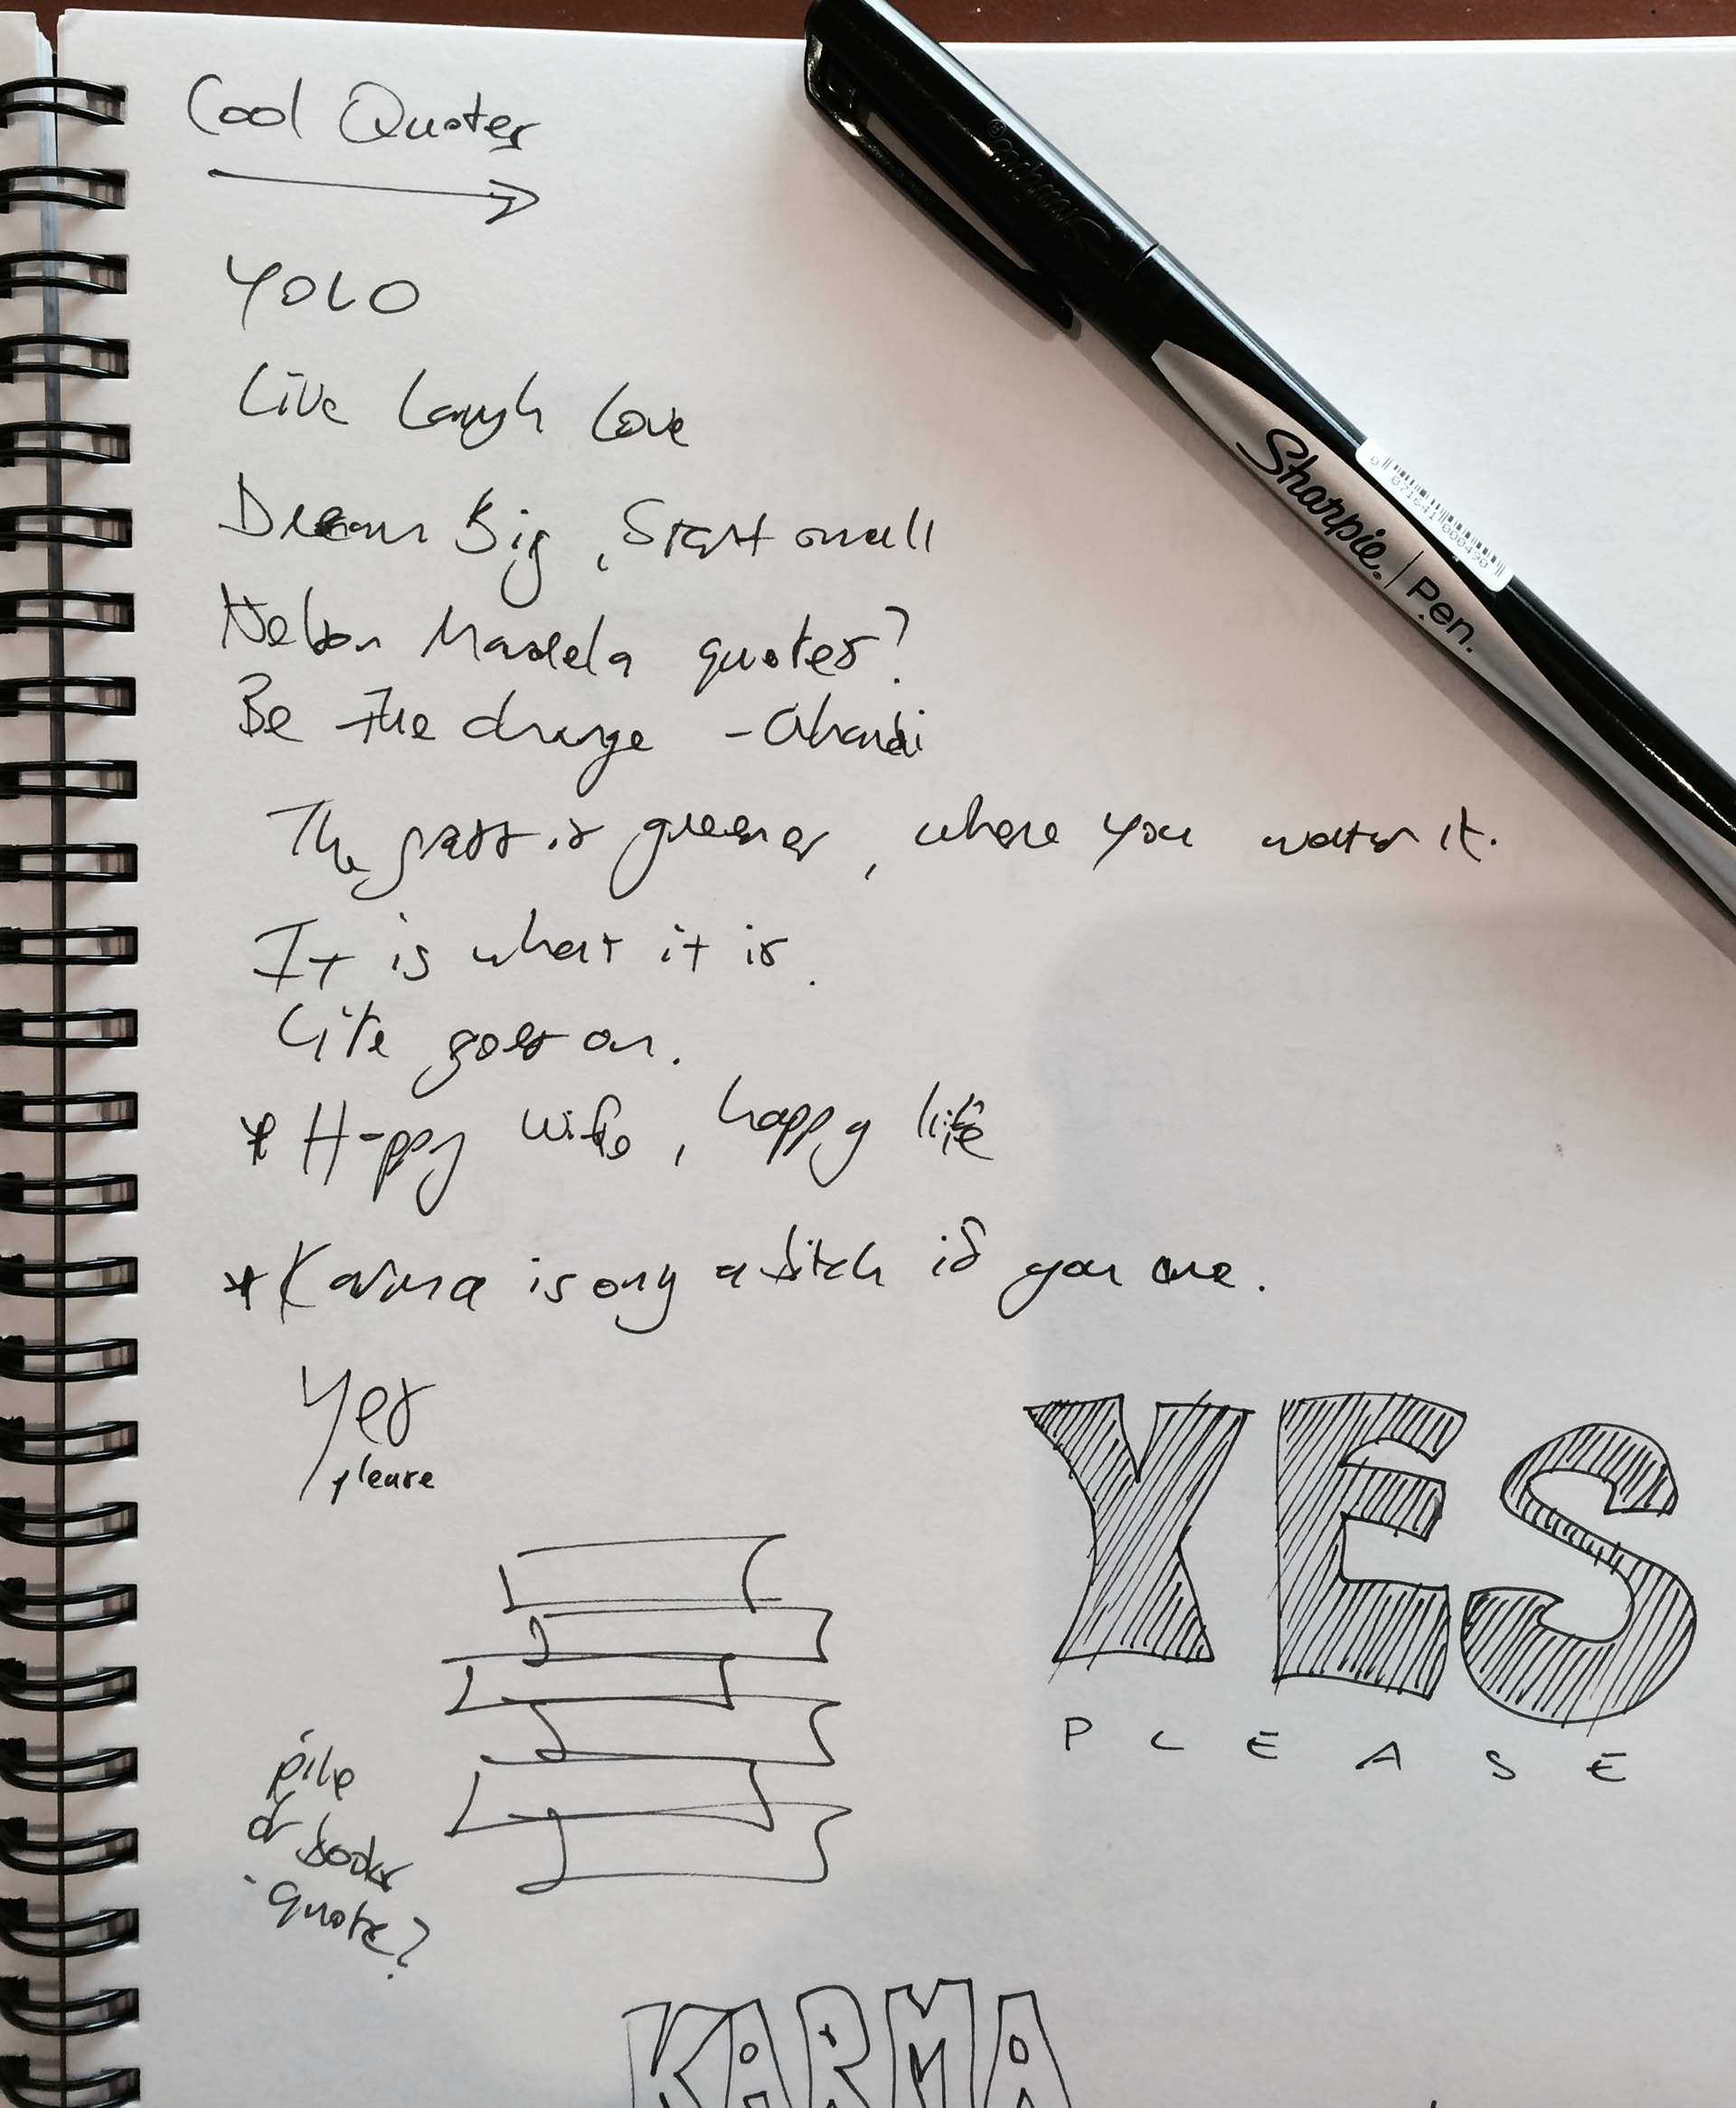 Cool Quotes
YOLO
Live Laugh Love
Dream Big, Start small
Nelson Mandela quotes?
Be the change - Ghandi
The grass is greener, where you water it.
It is what it is.
Life goes on.
* Happy wife, happy life
* Karma is ony a bitch if you are.
Yes
please
YES
PLEASE
pile
of books
quote?
KARMA
Sharpie
Sharpie. | Pen.
0 71641 000490